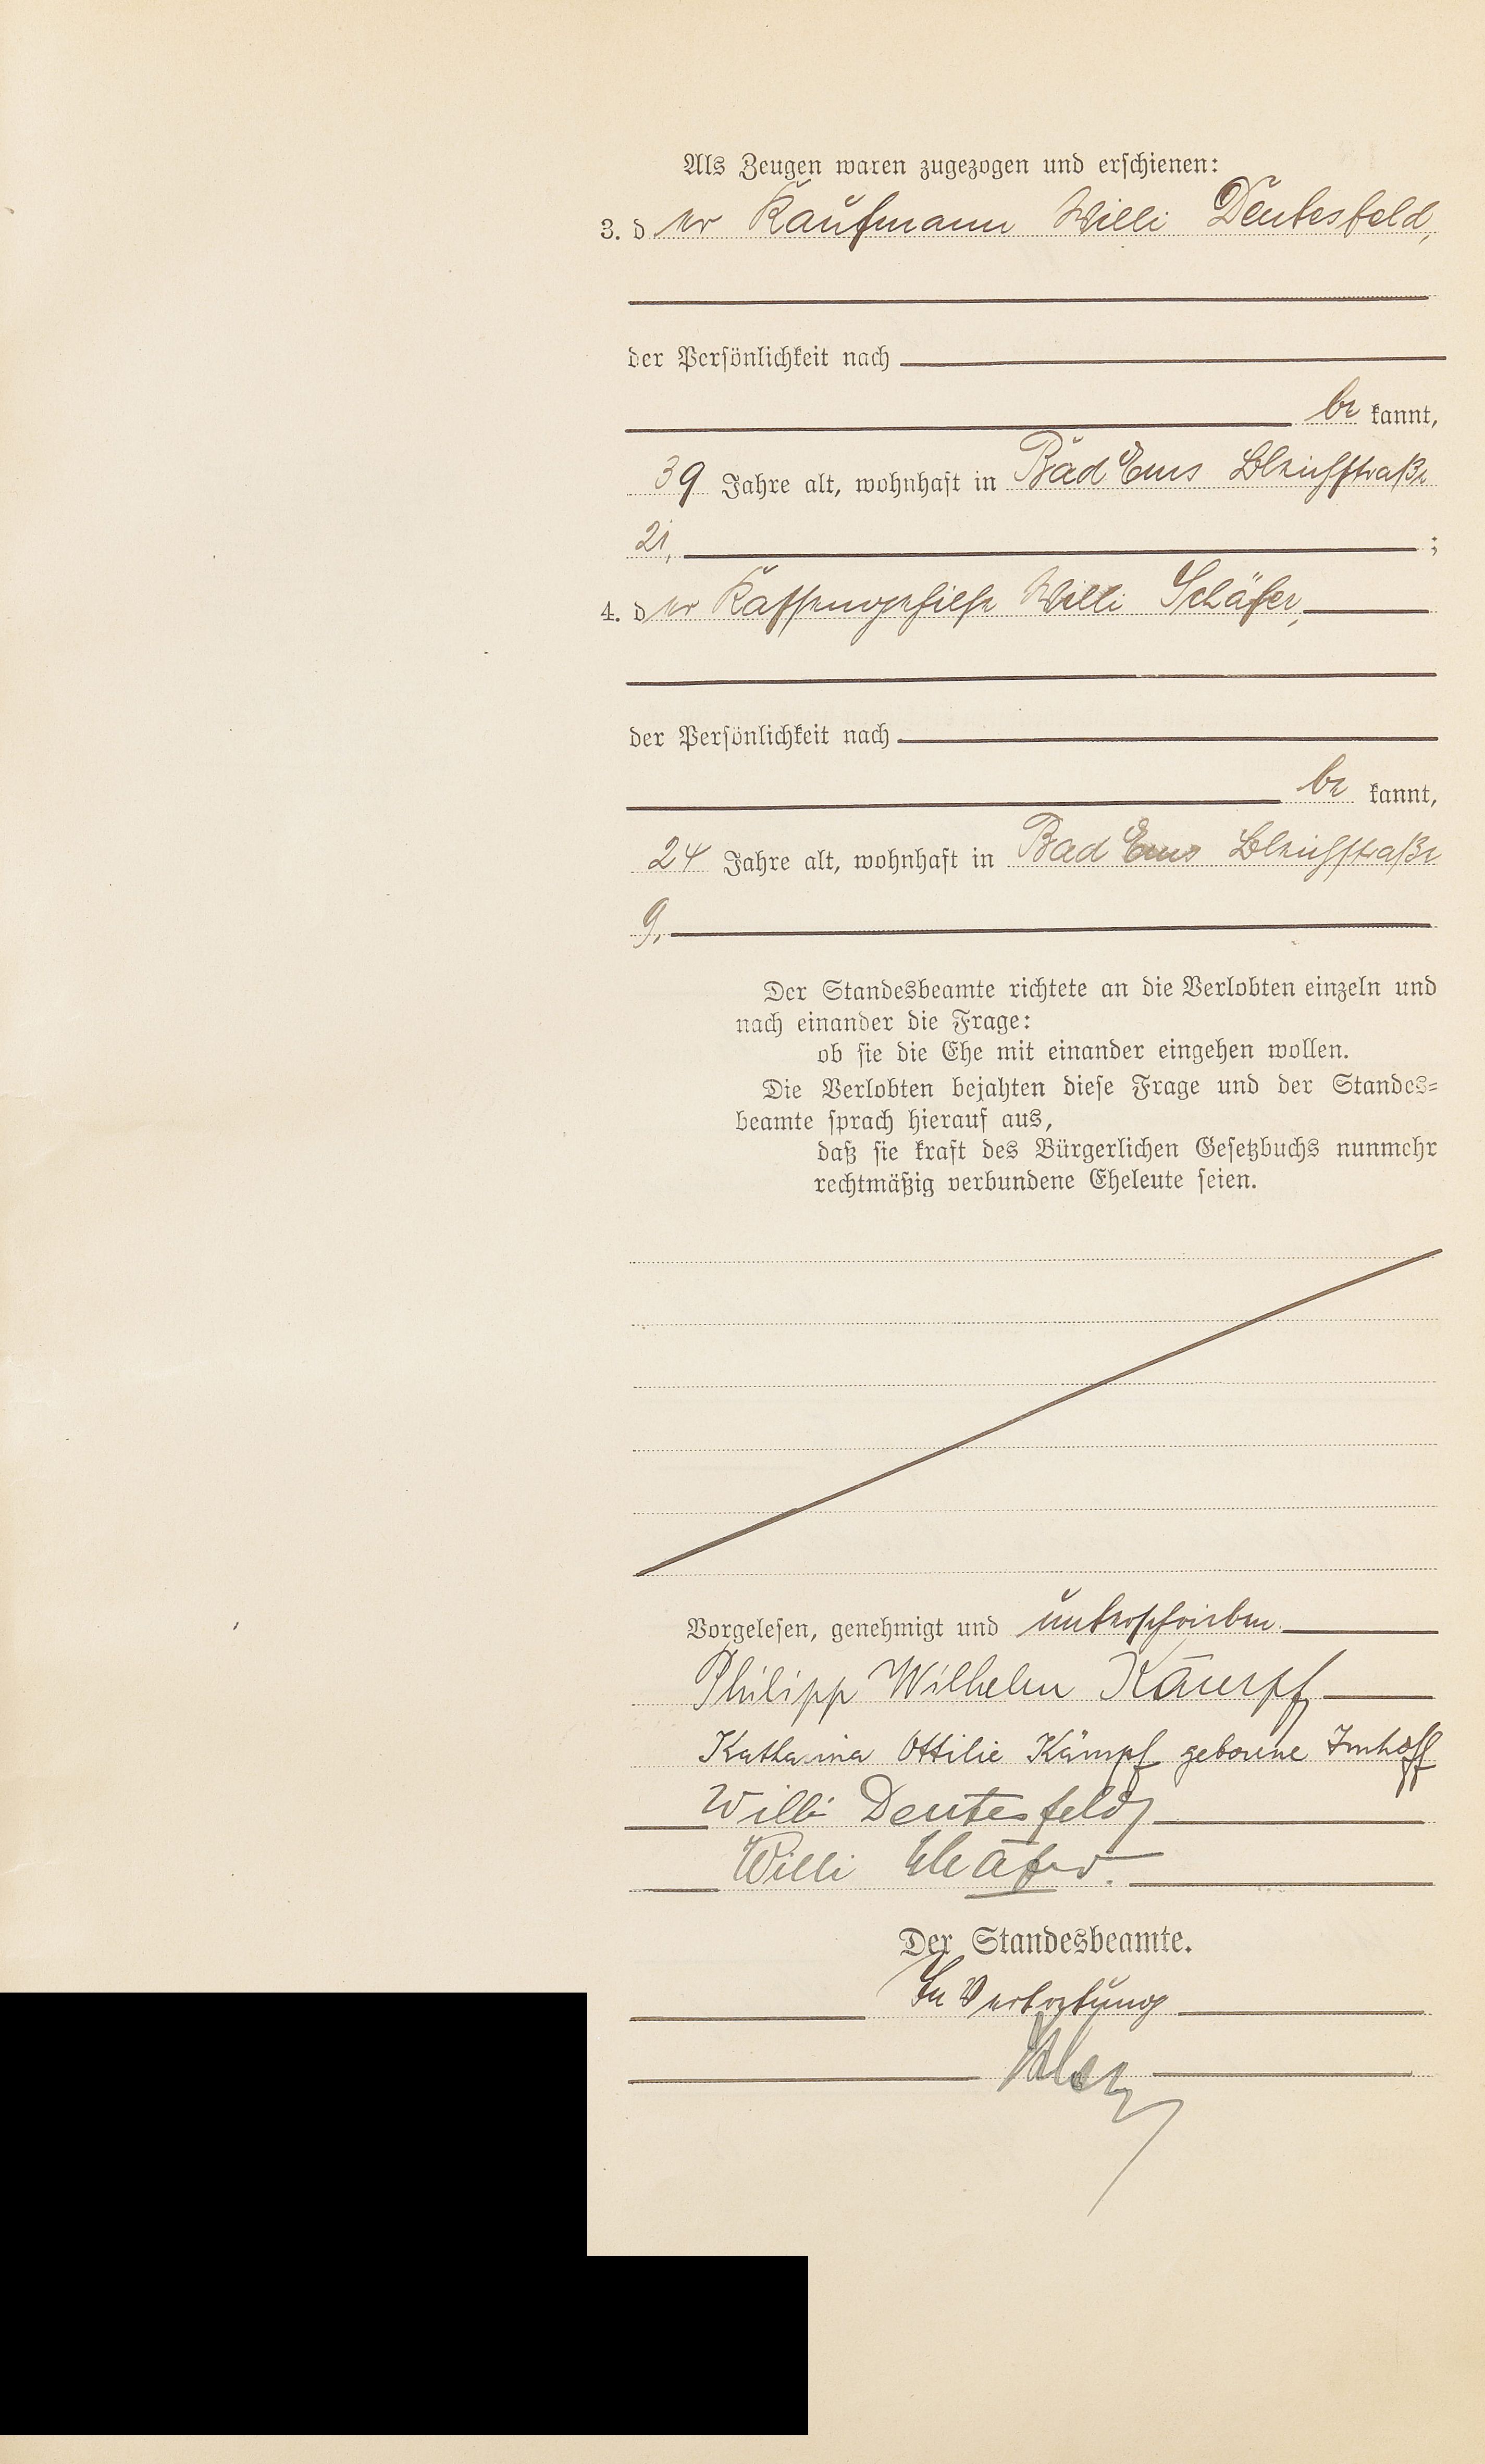 Als Zeugen waren zugezogen und erschienen:
3. der Kaufmann Willi Deutesfeld,
der Persönlichkeit nach
be kannt,
39 Jahre alt, wohnhaft in Bad Ems Bleichstraße
21, ;
4. der Kassengehilfe Willi Schäfer,
der Persönlichkeit nach
be kannt,
24 Jahre alt, wohnhaft in Bad Ems Bleichstraße
9,
Der Standesbeamte richtete an die Verlobten einzeln und
nach einander die Frage:
ob sie die Ehe mit einander eingehen wollen.
Die Verlobten bejahten diese Frage und der Standes=
beamte sprach hierauf aus,
daß sie kraft des Bürgerlichen Gesetzbuchs nunmehr
rechtmäßig verbundene Eheleute seien.
Vorgelesen, genehmigt und unterschrieben.
Philipp Wilhelm Kämpf
Katharina Ottilie Kämpf geborene Imhoff
Willi Deutesfeld
Willi Schäfer.
Der Standesbeamte.
In Vertretung